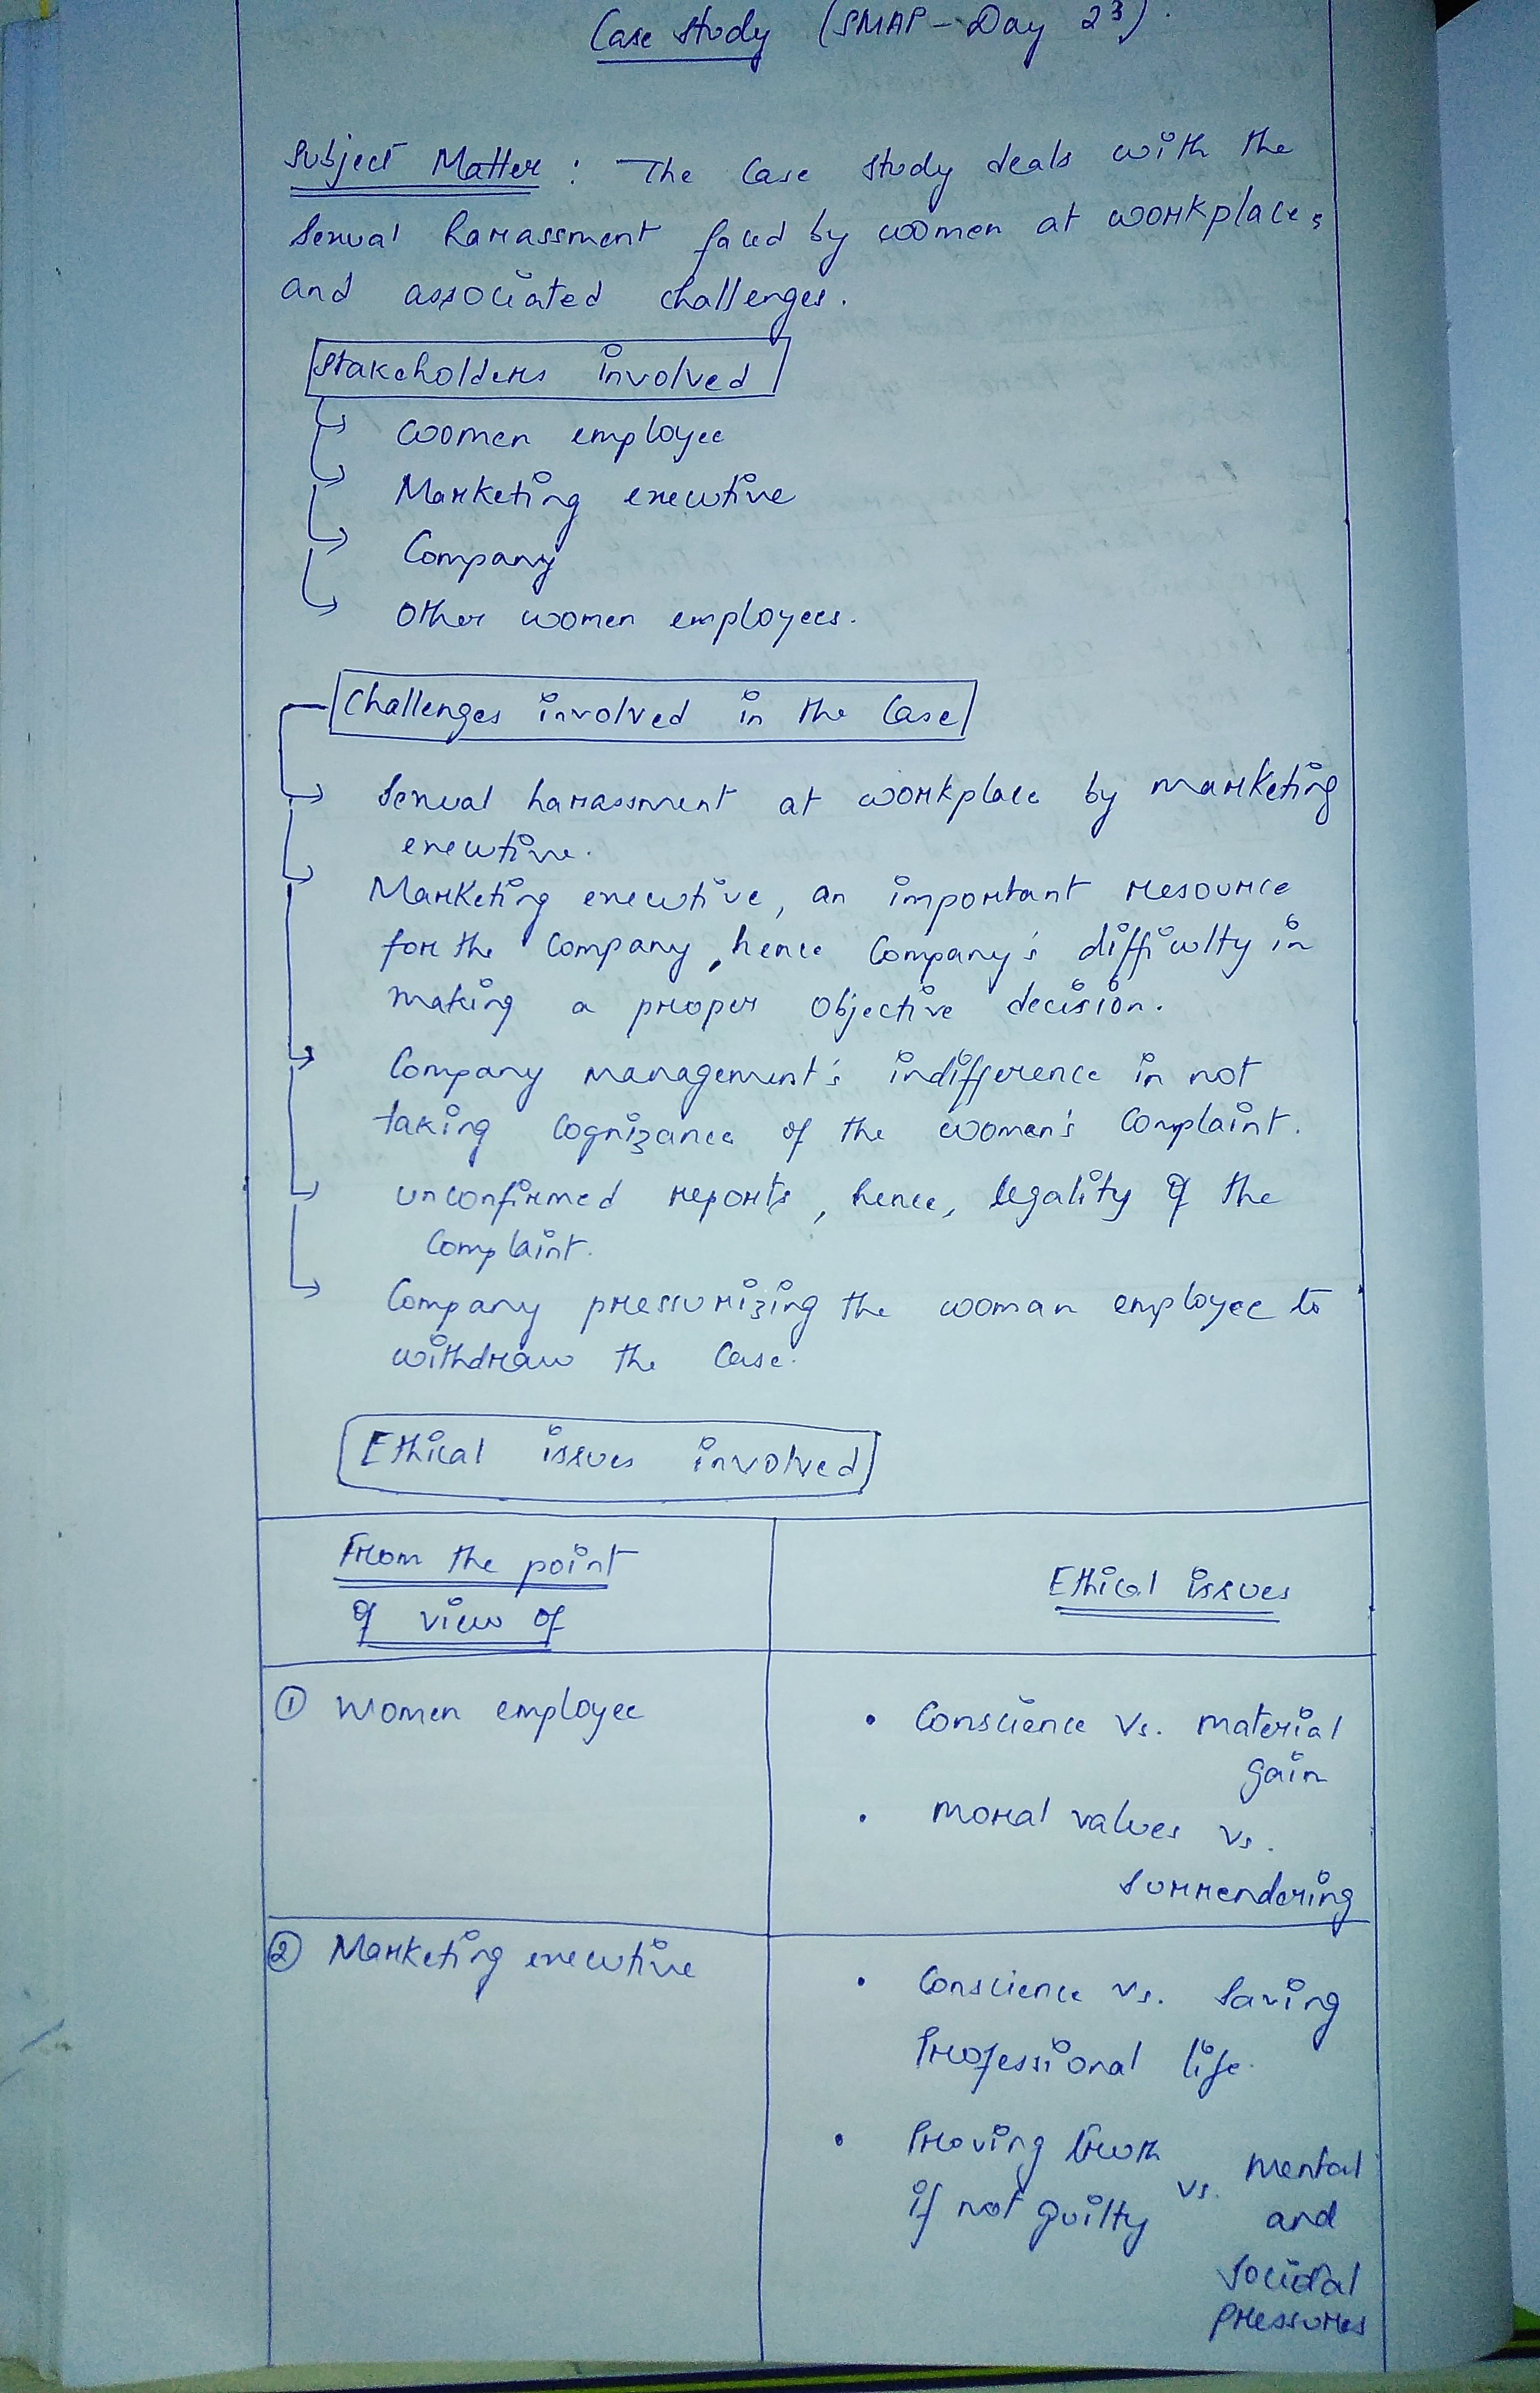 Case study (SMAP - Day 23).
Subject Matter : The Case study deals with the
Sexual harassment faced by women at workplaces
and associated challenges.
Stakeholders involved
Women employee
Marketing executive
Company
Other women employees.
Challenges involved in the Case
Sexual harassment at workplace by marketing
executive.
Marketing executive, an important resource
for the Company, hence Company's difficulty in
making a proper objective decision.
Company management's indifference in not
taking Cognizance of the women's Complaint.
unconfirmed reports, hence, legality of the
Complaint.
Company pressurizing the woman employee to
withdraw the Case.
Ethical issues involved
From the point
of view of
Ethical issues
① Women employee
• Conscience Vs. material
gain
• Moral values Vs.
surrendering
② Marketing executive
• Conscience Vs. Saving
Professional life.
• Proving truth
if not guilty Vs. Mental
and
Societal
pressures